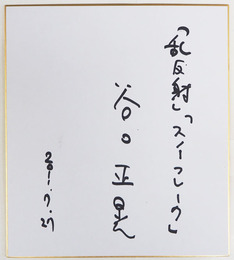 「乱反射」「スノーフレーク」
谷口正晃
2011.7.27